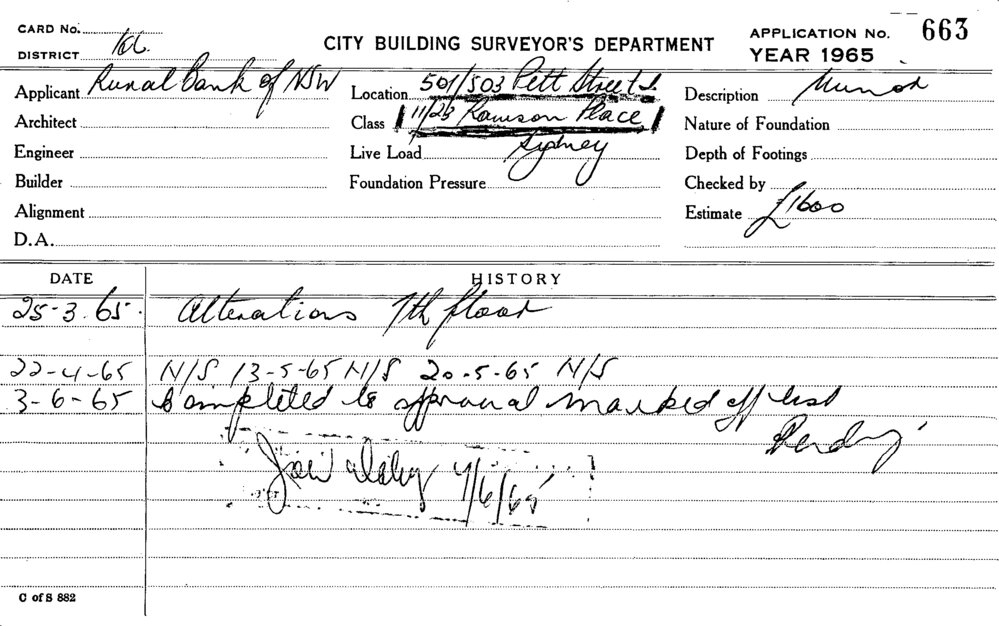 CARD No.
DISTRICT
CITY BUILDING SURVEYOR'S DEPARTMENT
APPLICATION No. 663
YEAR 1965
Applicant Rural Bank of NSW
Location 501/503 Pitt Street S.
Description Minor
Architect
Class 11/23 Rawson Place
Sydney
Nature of Foundation
Engineer
Live Load
Depth of Footings
Builder
Foundation Pressure
Checked by
Alignment
Estimate £1600
D.A.
DATE HISTORY
25-3-65. Alterations 7th floor
22-4-65 N/S. 13-5-65 N/S 20-5-65 N/S
3-6-65 Completed to approval marked off list
4/6/65
C of S 882